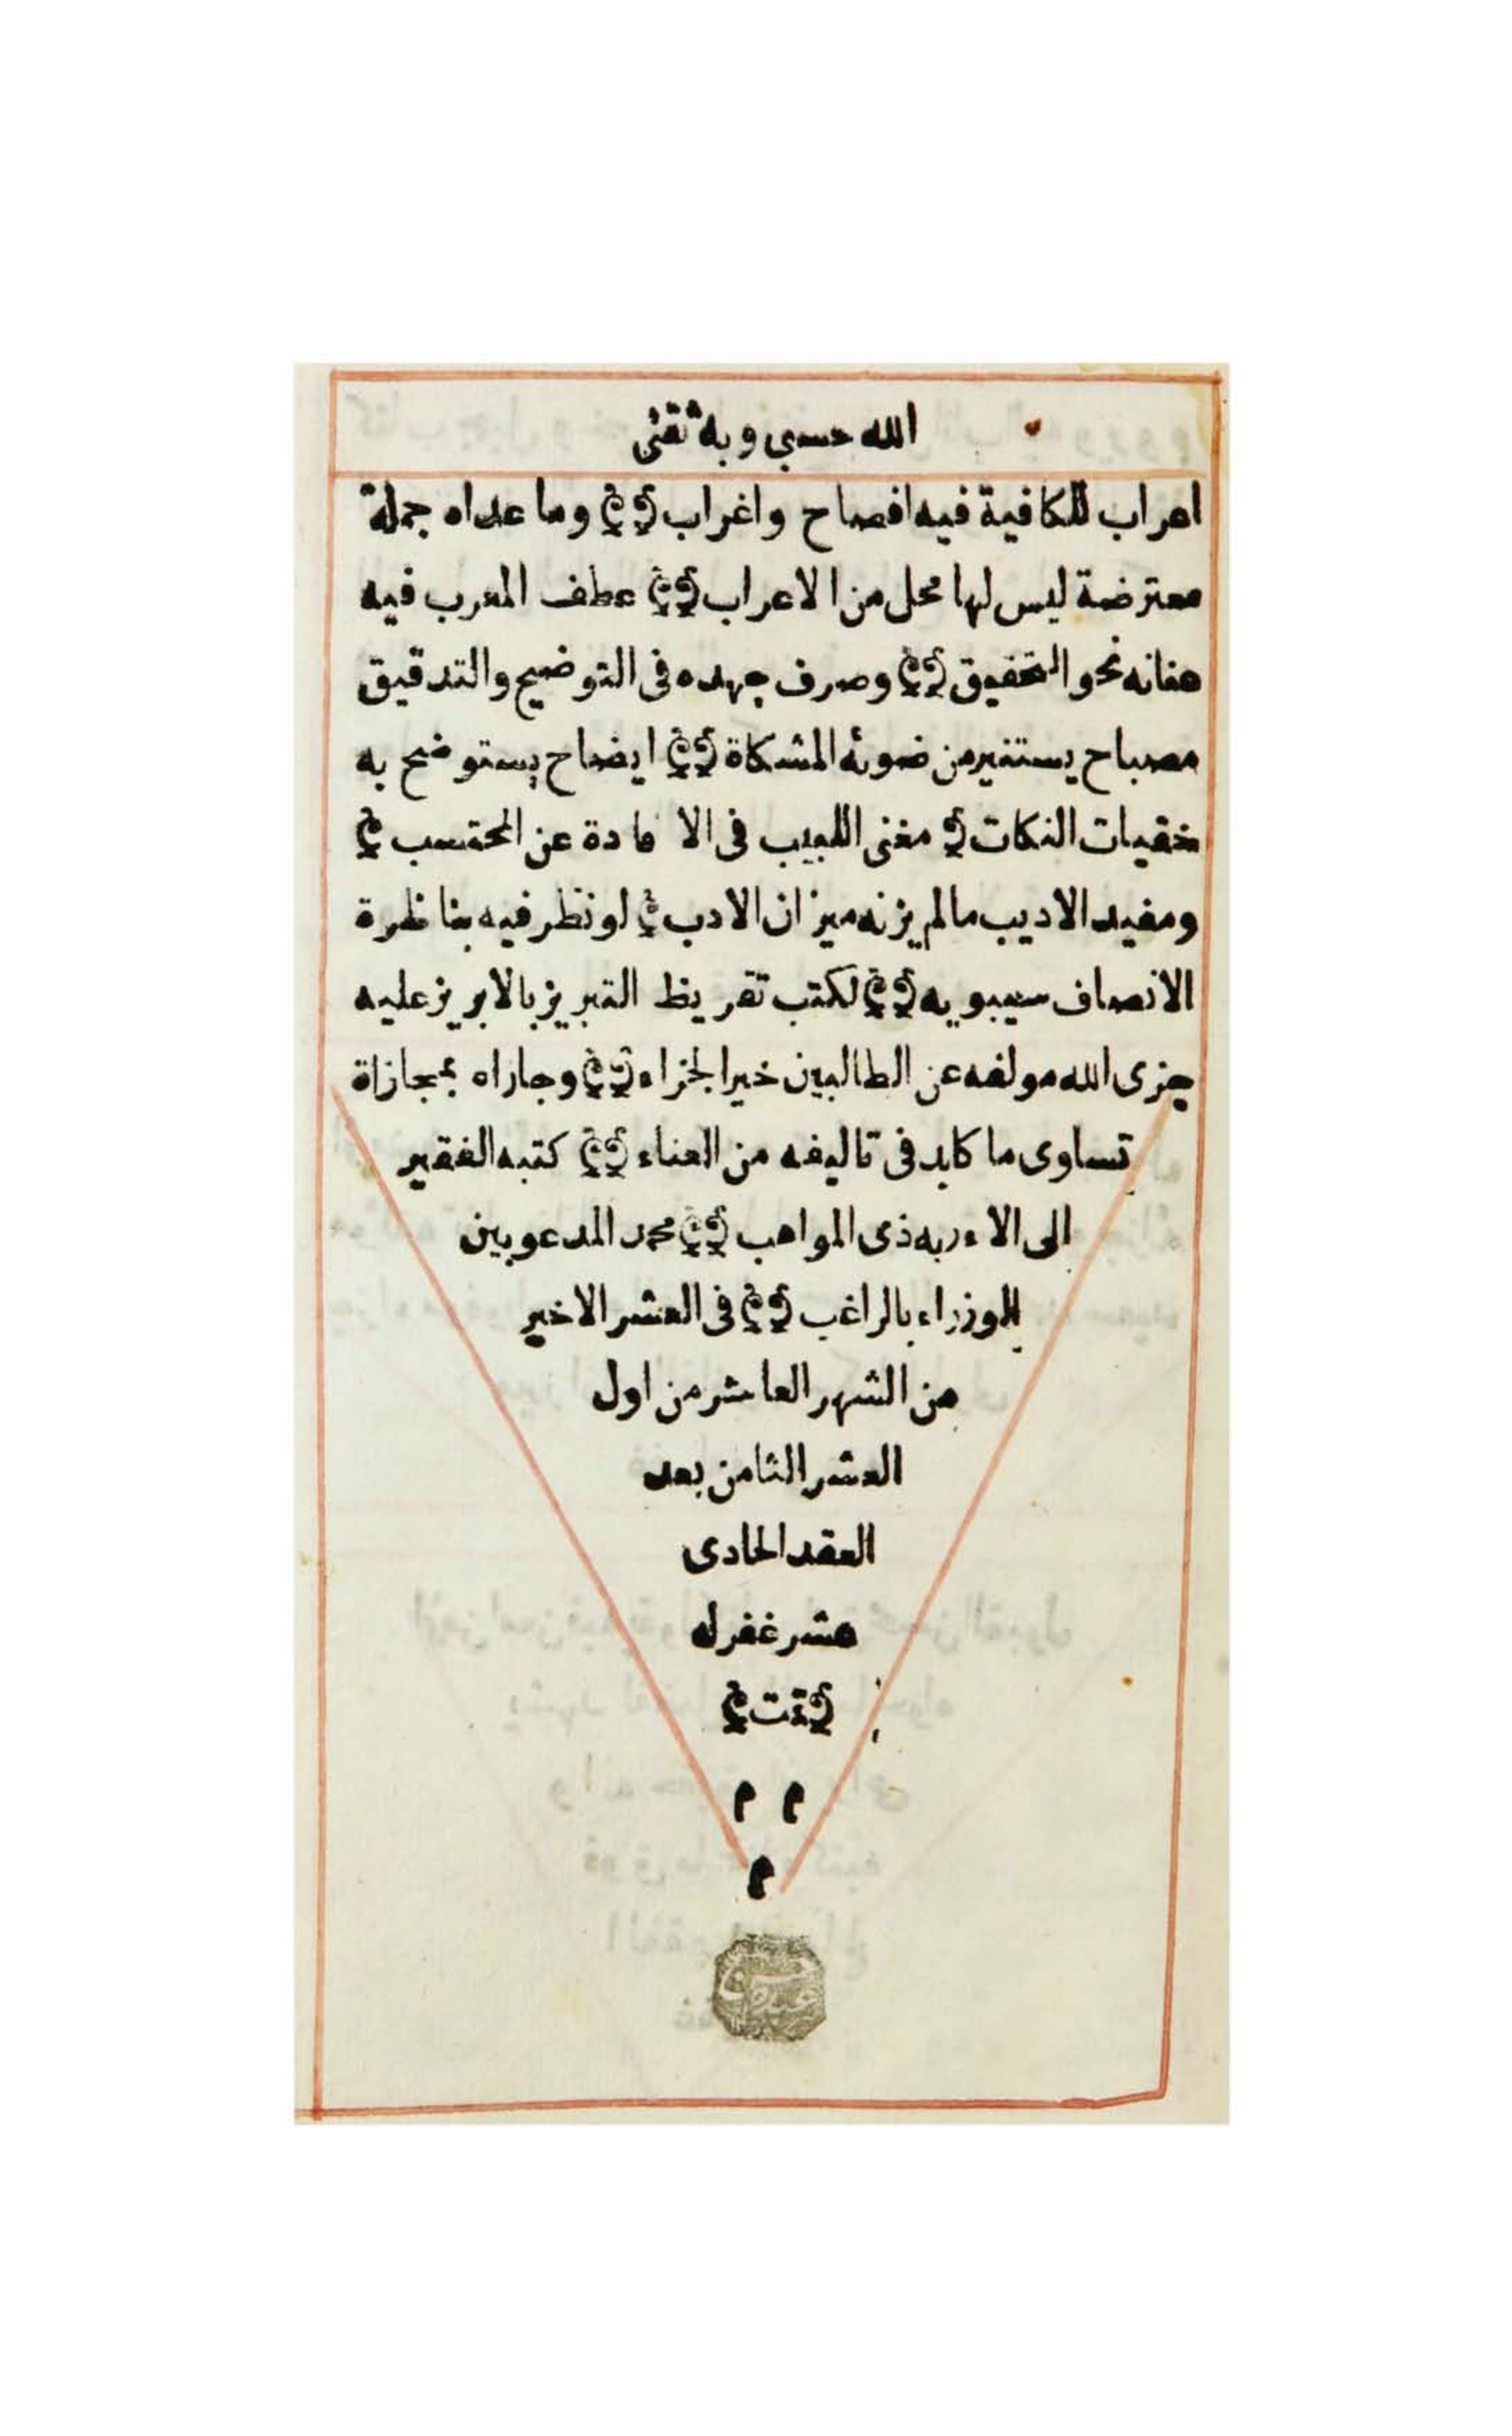 الله حسبى وبه ثقتى
اعراب للكافية فيه افصاح واغراب وما عداه جملة
معترضة ليس لها محل من الاعراب عطف المعرب فيه
عنانه نحو التحقيق وصرف جهده فى التوضيح والتدقيق
مصباح يستنير من ضوئه المشكاة ايضاح يستوضح به
خفيات النكات مغنى اللبيب فى الافادة عن المحتسب
ومفيد الاديب ما لم يزنه ميزان الادب لو نظر فيه بناظرة
الانصاف سيبويه لكتب تقريظ التبريز بالابريز عليه
جزى الله مولفه عن الطالبين خير الجزاء وجازاه بمجازاة
تساوى ما كابد فى تاليفه من العناء كتبه الفقير
الى الاء ربه ذى المواهب محمد المدعو بين
الوزراء بالراغب فى العشر الاخير
من الشهر العاشر من اول
العشر الثامن بعد
العقد الحادى
عشر غفر له
تمت
م م
م